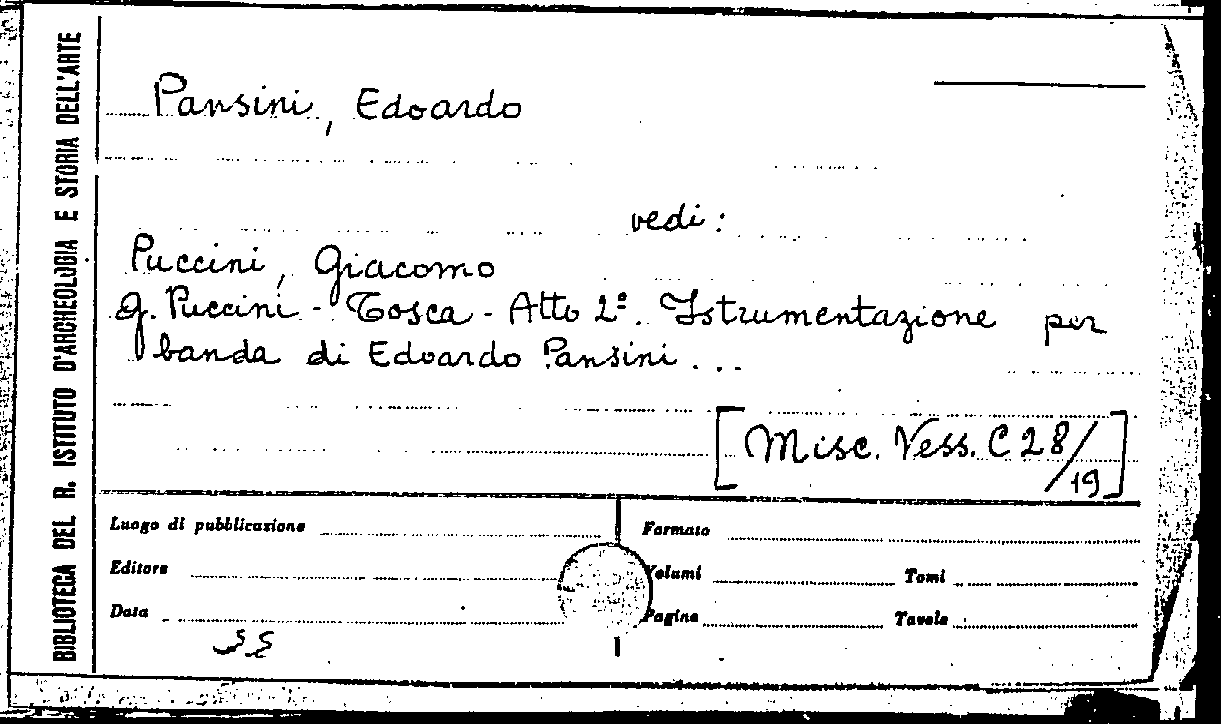 BIBLIOTECA DEL R. ISTITUTO D'ARCHEOLOGIA E STORIA DELL'ARTE
Pansini, Edoardo
vedi:
Puccini, Giacomo
G. Puccini - Tosca - Atto 2º. Istrumentazione per
banda di Edoardo Pansini ...
[Misc. Vess. C 28/19]
Luogo di pubblicazione
Formato
Editore
Volumi
Tomi
Data
Pagine
Tavole